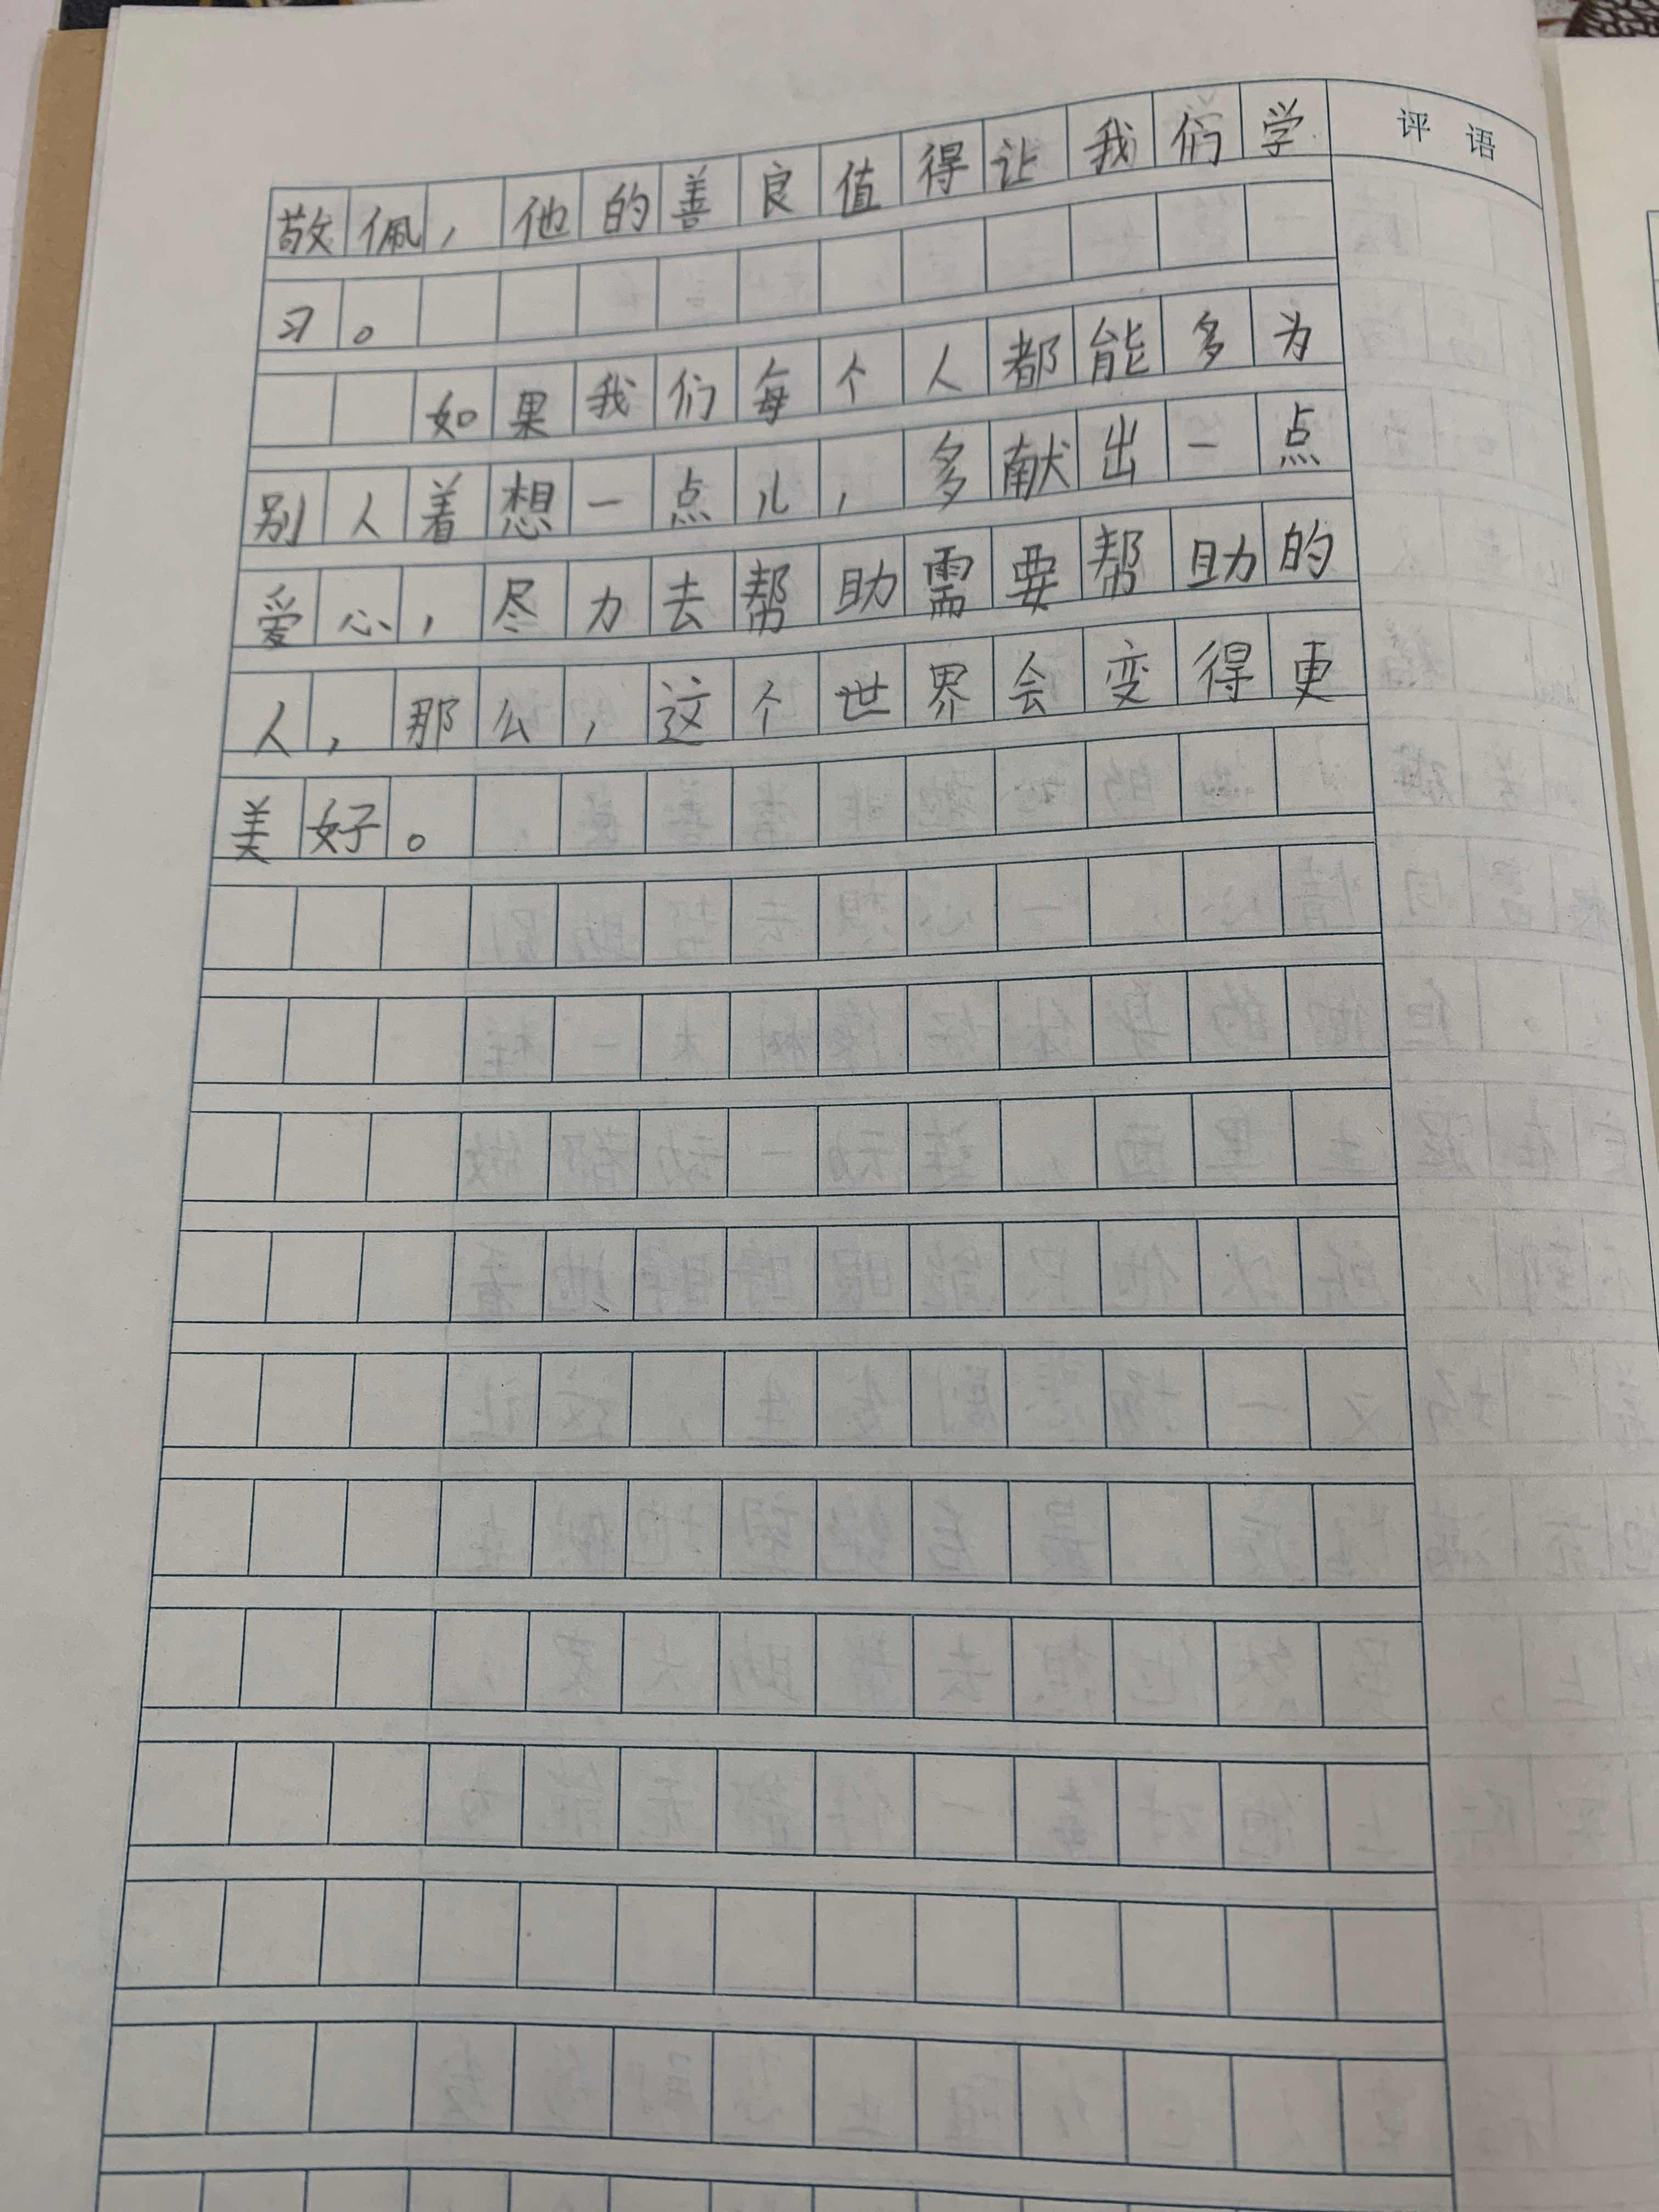 评语
敬佩，他的善良值得让我们学
习。
如果我们每个人都能多为
别人着想一点儿，多献出一点
爱心，尽力去帮助需要帮助的
人，那么，这个世界会变得更
美好。